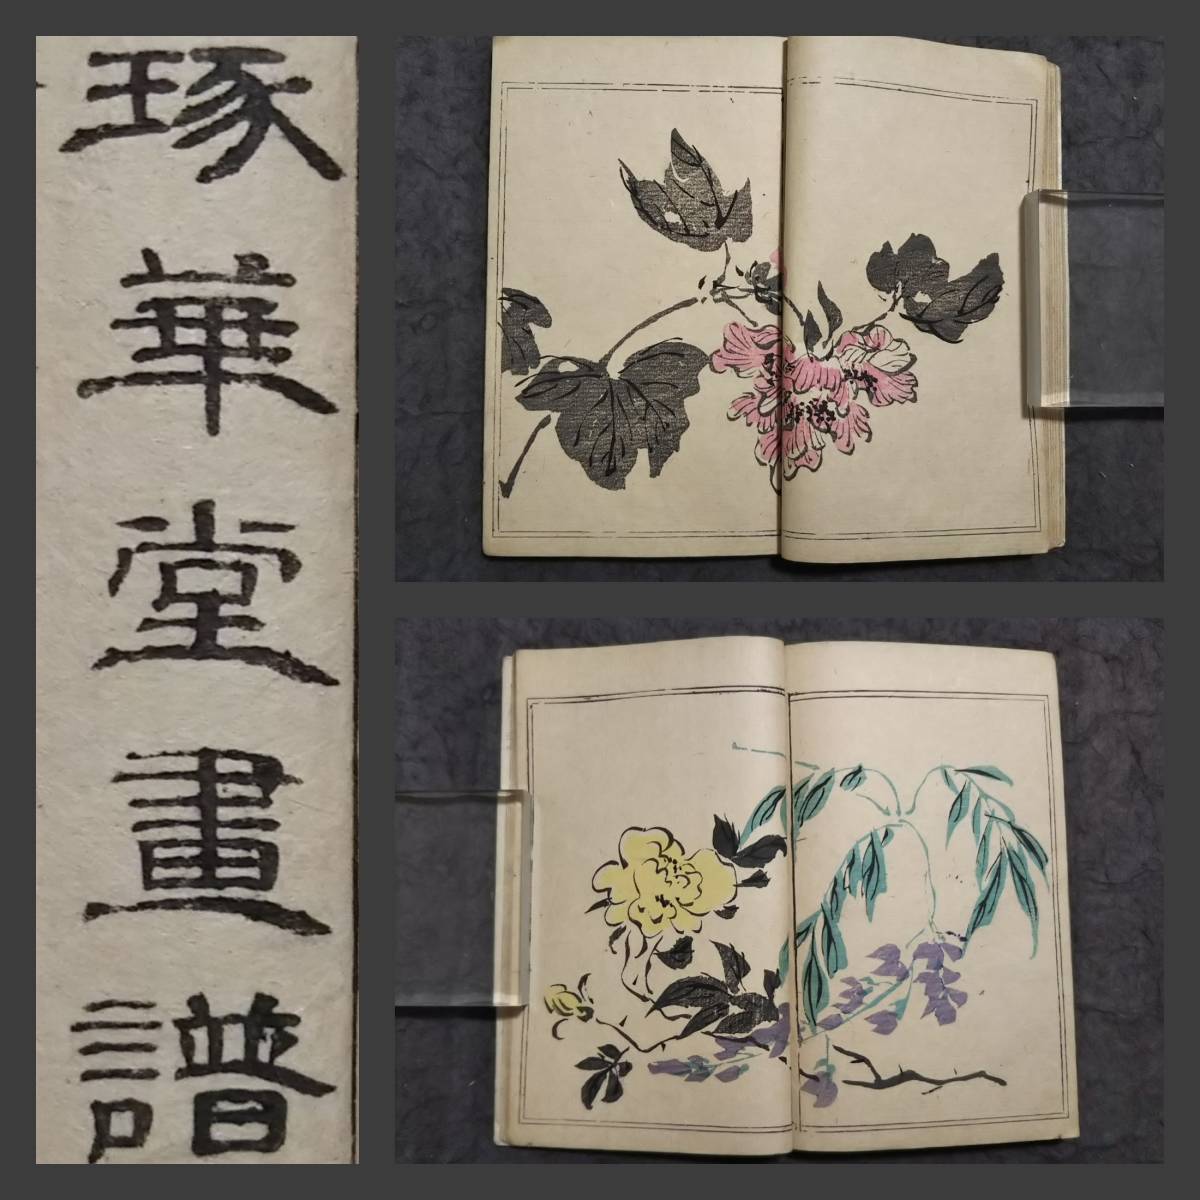 琢華堂畫譜